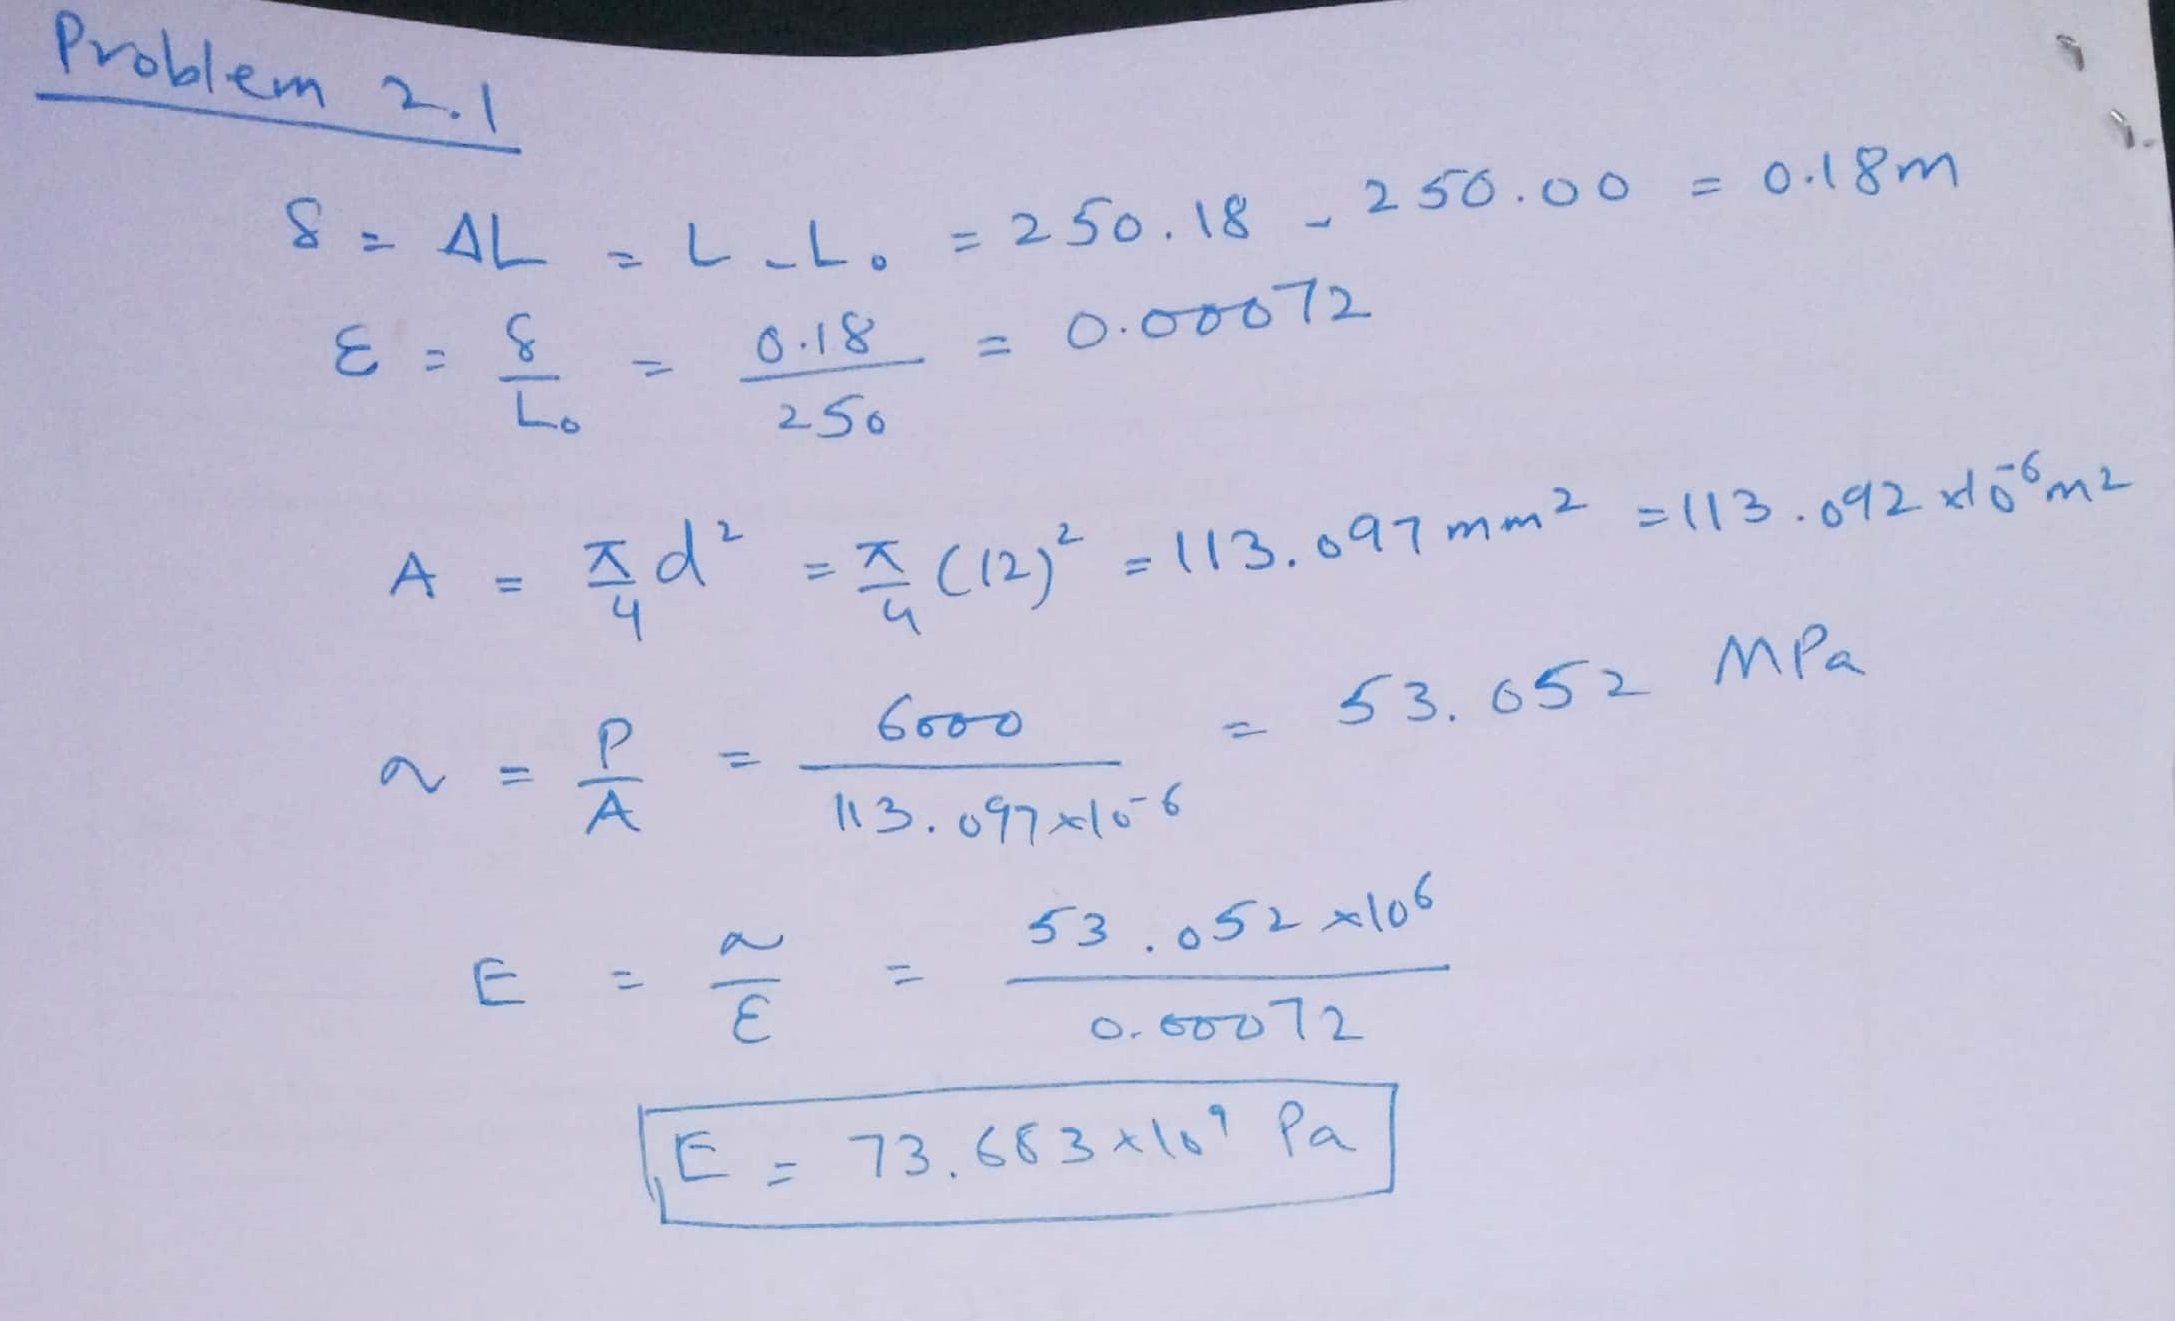 Problem 2.1
δ = ΔL = L - L₀ = 250.18 - 250.00 = 0.18m
ε = δ/L₀ = 0.18/250 = 0.00072
A = π/4 d² = π/4 (12)² = 113.097 mm² = 113.092 x10⁻⁶ m²
σ = P/A = 6000/113.097x10⁻⁶ = 53.052 MPa
E = σ/ε = 53.052 x10⁶/0.00072
E = 73.683 x10⁹ Pa